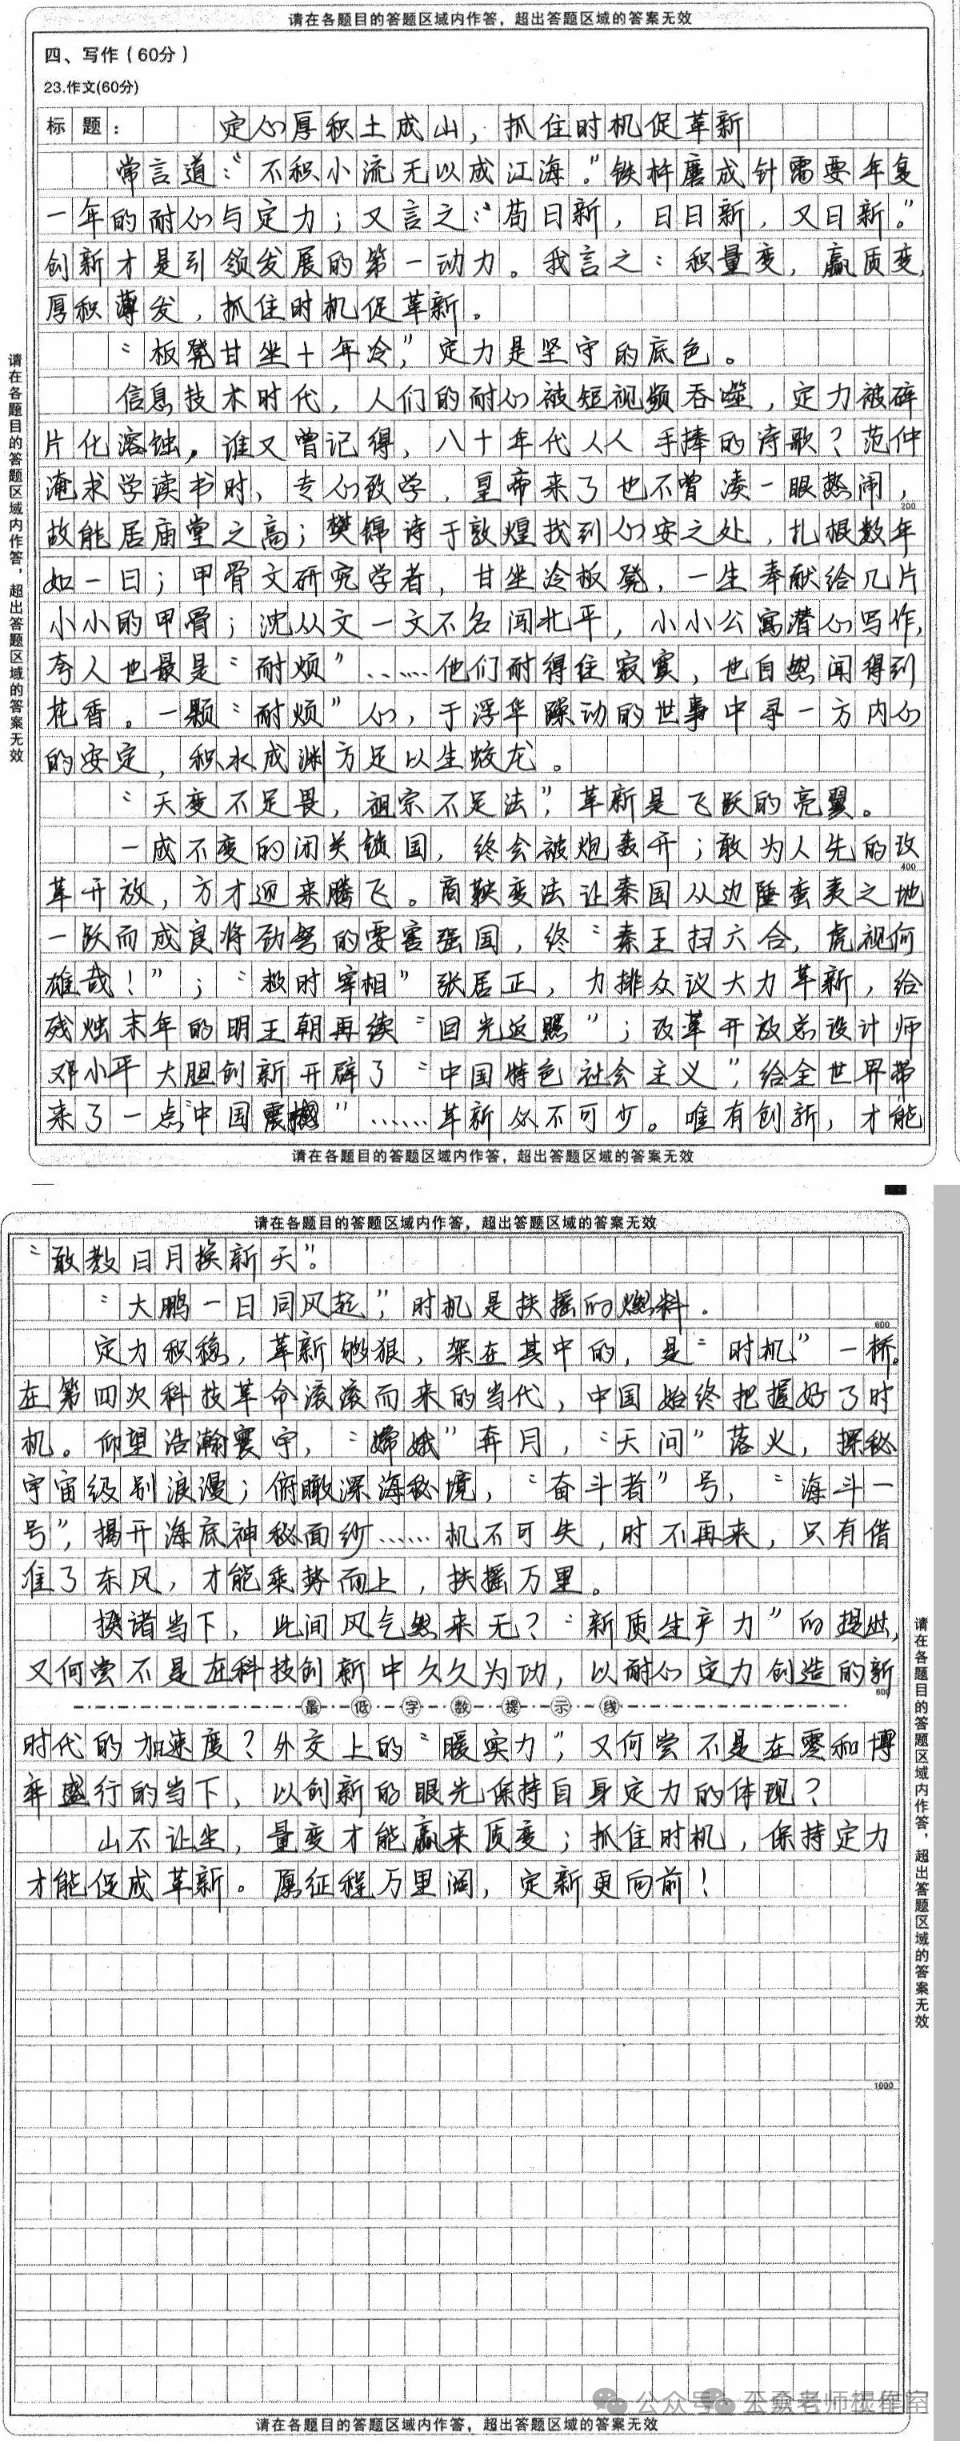 请在各题目的答题区域内作答，超出答题区域的答案无效
四、写作（60分）
23.作文(60分)
标题：定心厚积土成山，抓住时机促革新
常言道：“不积小流无以成江海。”铁杵磨成针需要年复
一年的耐心与定力；又言之：“苟日新，日日新，又日新。”
创新才是引领发展的第一动力。我言之：积量变，赢质变，
厚积薄发，抓住时机促革新。
“板凳甘坐十年冷”，定力是坚守的底色。
信息技术时代，人们的耐心被短视频吞噬，定力被碎
片化溶蚀。谁又曾记得，八十年代人人手捧的诗歌？范仲
淹求学读书时，专心致学，皇帝来了也不曾凑一眼热闹，
200
故能居庙堂之高；樊锦诗于敦煌找到心安之处，扎根数年
如一日；甲骨文研究学者，甘坐冷板凳，一生奉献给几片
小小的甲骨；沈从文一文不名闯北平，小小公寓潜心写作，
夸人也最是“耐烦”……他们耐得住寂寞，也自然闻得到
花香。一颗“耐烦”心，于浮华躁动的世事中寻一方内心
的安定，积水成渊方足以生蛟龙。
“天变不足畏，祖宗不足法”，革新是飞跃的亮翼。
一成不变的闭关锁国，终会被炮轰开；敢为人先的改
400
革开放，方才迎来腾飞。商鞅变法让秦国从边陲蛮夷之地
一跃而成良将劲弩的要害强国，终“秦王扫六合，虎视何
雄哉！”；“救时宰相”张居正，力排众议大力革新，给
残烛末年的明王朝再续“回光返照”；改革开放总设计师
邓小平大胆创新开辟了“中国特色社会主义”，给全世界带
来了一点“中国震撼”……革新必不可少。唯有创新，才能
请在各题目的答题区域内作答，超出答题区域的答案无效
请在各题目的答题区域内作答，超出答题区域的答案无效
请在各题目的答题区域内作答，超出答题区域的答案无效
“敢教日月换新天”。
“大鹏一日同风起”，时机是扶摇的燃料。
600
定力积稳，革新够狠，架在其中的，是“时机”一桥。
在第四次科技革命滚滚而来的当代，中国始终把握好了时
机。仰望浩瀚寰宇，“嫦娥”奔月，“天问”落火，探秘
宇宙级别浪漫；俯瞰深海秘境，“奋斗者”号，“海斗一
号”，揭开海底神秘面纱……机不可失，时不再来，只有借
准了东风，才能乘势而上，扶摇万里。
揆诸当下，此间风气然来无？“新质生产力”的提出，
又何尝不是在科技创新中久久为功，以耐心定力创造的新
600
最低字数提示线
时代的加速度？外交上的“暖实力”，又何尝不是在零和博
弈盛行的当下，以创新的眼光保持自身定力的体现？
山不让尘，量变才能赢来质变；抓住时机，保持定力
才能促成革新。愿征程万里阔，定新更向前！
1000
请在各题目的答题区域内作答，超出答题区域的答案无效
请在各题目的答题区域内作答，超出答题区域的答案无效
公众号